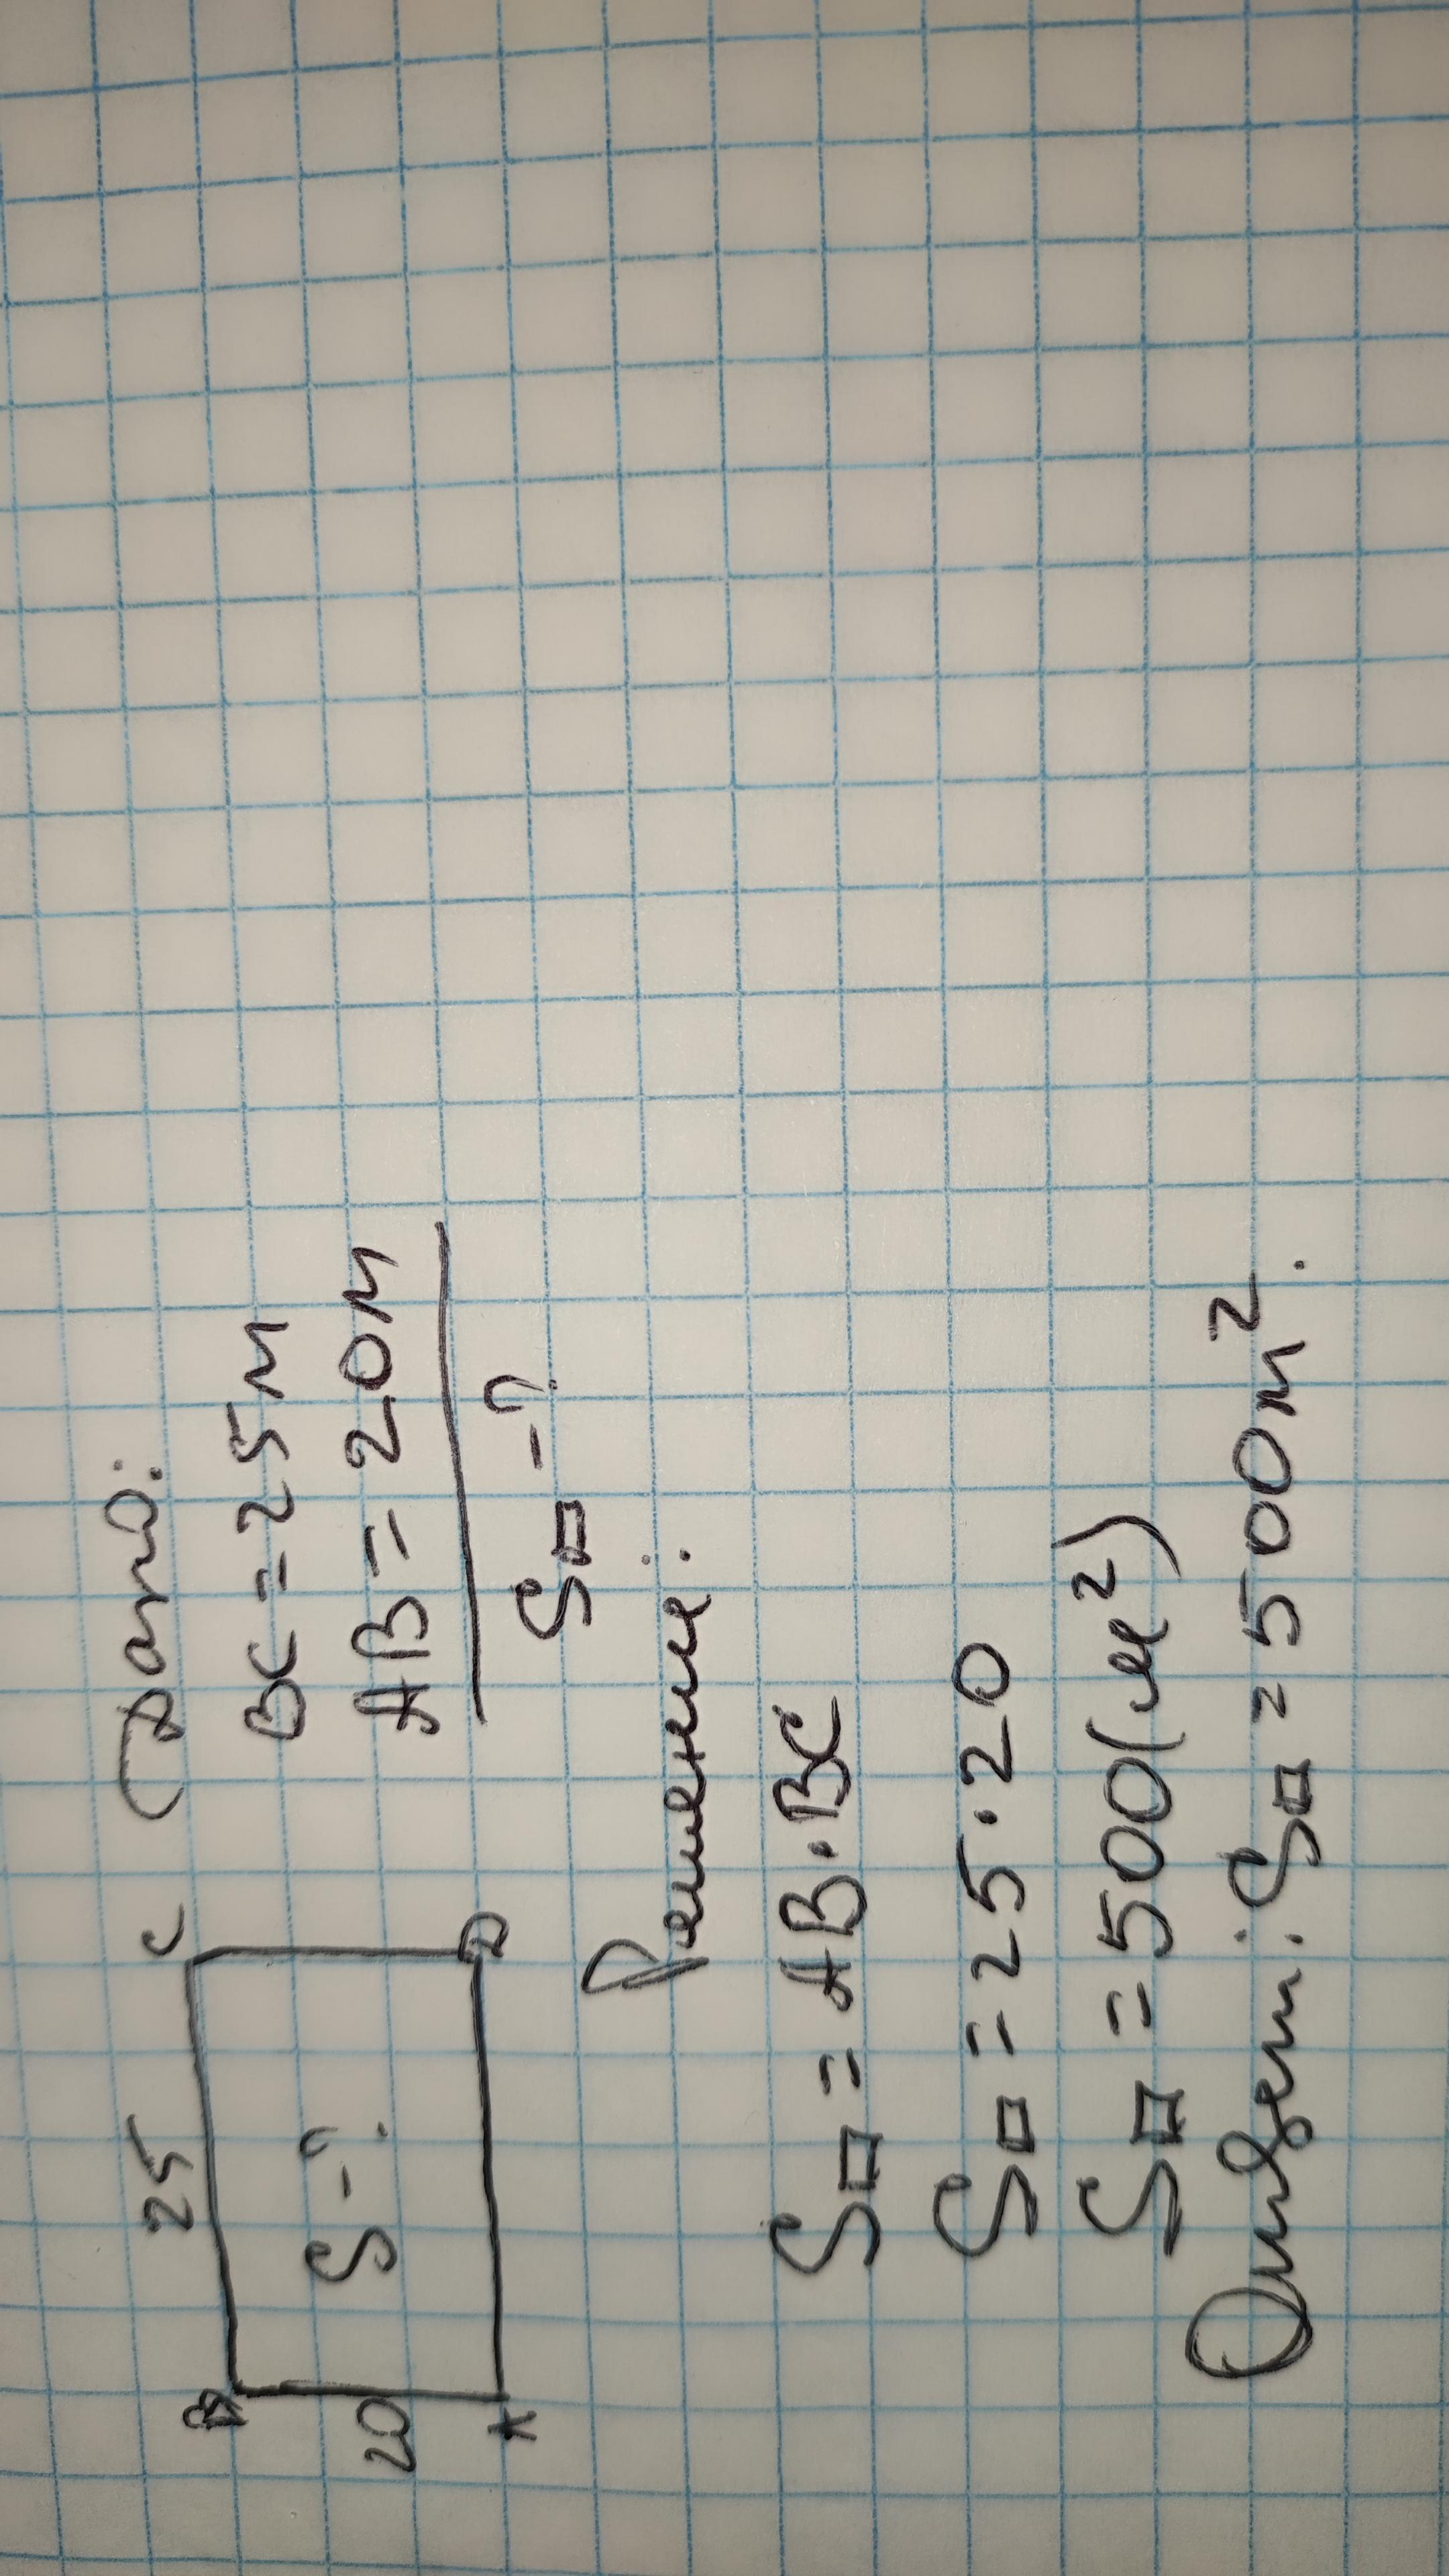 B 25 C
20 S-?
A D
Дано:
BC = 25м
AB = 20м
S▭ -?
Решение:
S▭ = AB·BC
S▭ = 25·20
S▭ = 500(м²)
Ответ: S▭ = 500м².